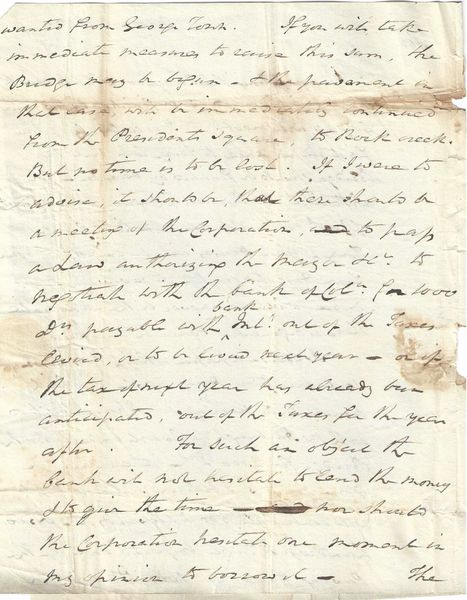 wanted from George Town. If you will take
immediate measures to raise this sum, the
Bridge may be begun - & the pavement in
that case will be immediately continued
from the Presidents Square, to Rock creek.
But no time is to be lost. If I were to
advise, it should be, that there should be
a meeting of the Corporation, to pass
a Law authorizing the Mayor &c. to
negotiate with the bank of Cola. for 1000
Drs payable with bank Intt. out of the Taxes
levied, or to be levied next year - or if
the tax of next year has already been
anticipated, out of the Taxes for the year
after. For such an object the
bank will not hesitate to lend the money
& to give the time - nor should
the Corporation hesitate one moment in
my opinion to borrow it - The